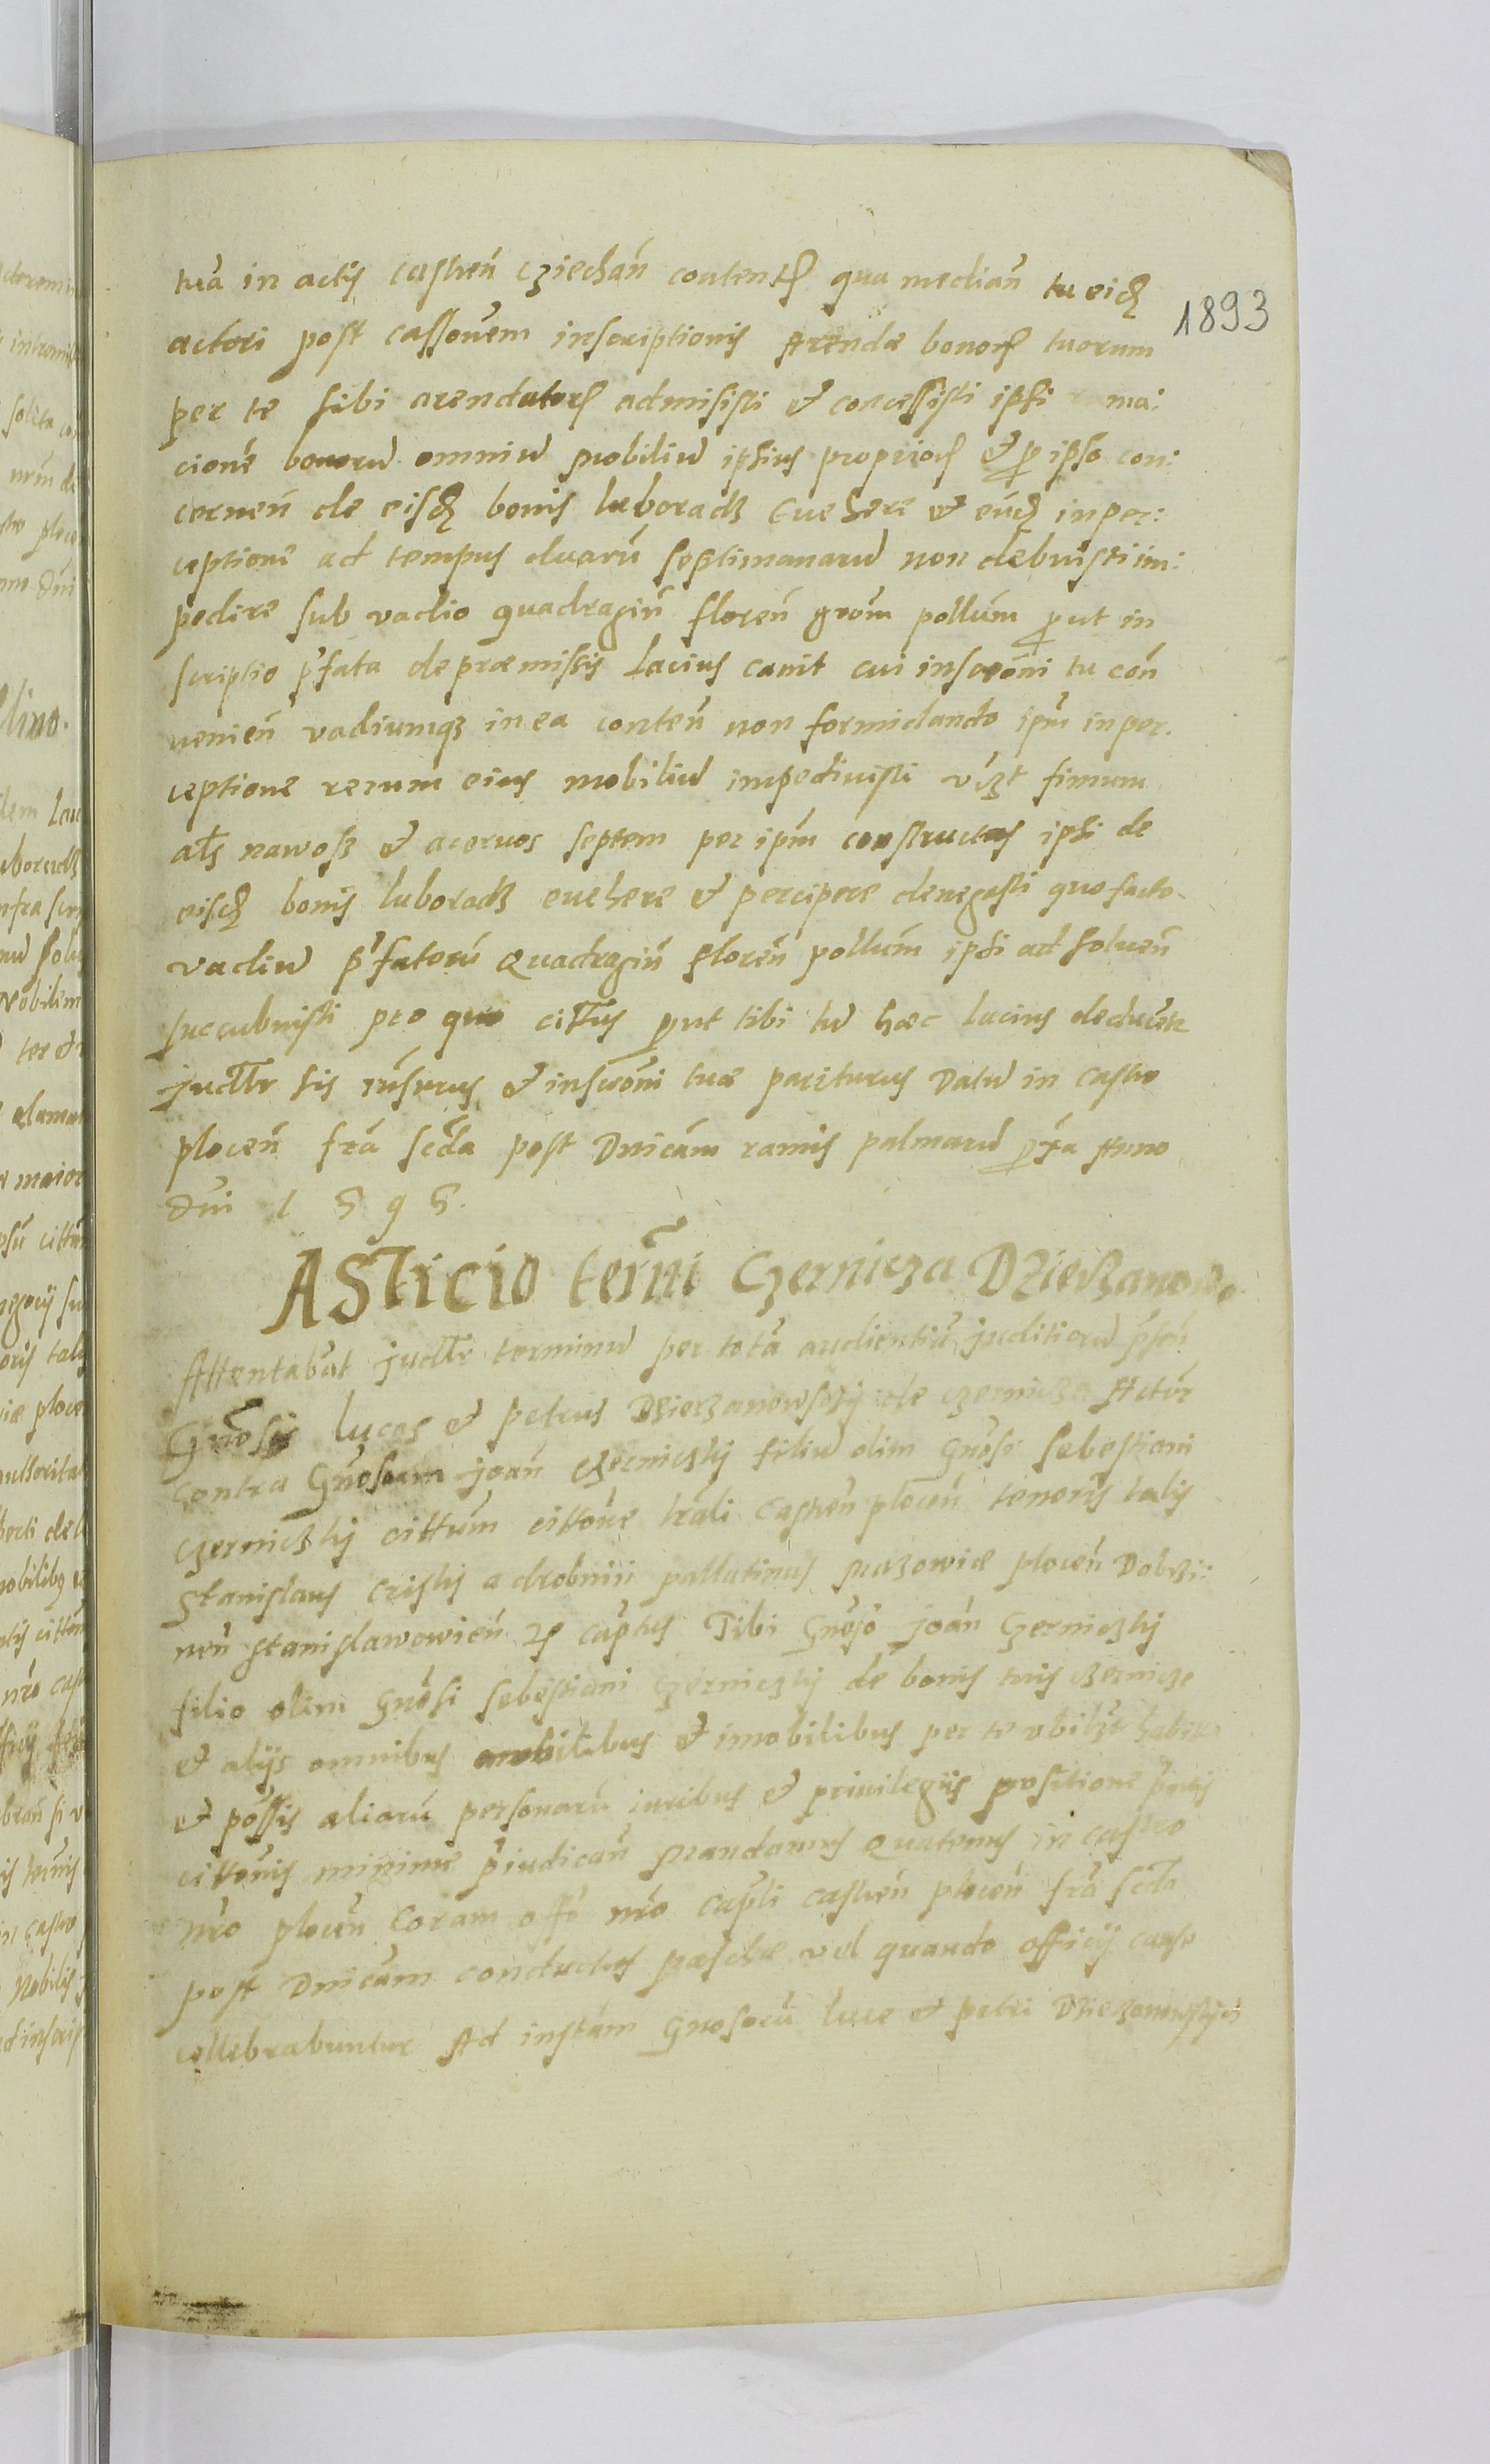 1893
tuā in actis castren̄ cziechan̄ content qua median̄ tu eid
actori post cassonem inscriptionis Arendæ bonor tuorum
per te sibi arendator admisisti et concessisti ipsi
cione bonorū omniū mobiliū ipsius proprior et p ipso con:
cernen̄ de eisd bonis luboradz Euehere et eūd in per:
ceptione ad tempus duarū septimanarū non debuisti im:
pedire sub vadio quadragin̄ floren̄ grom pollūm put in
scriptio p̄fata de præmissis Lacius canit cui inscroni tu con
uenien̄ vadiumq3 in ea conten̄ non formidando ipm̄ in per.
ceptione rerum eius mobiliū impediuisti vizt fimum
als nawosz et aceruos septem per ipm̄ constructos ipsi de
eisd bonis luboradz euehere et percipere denegasti quo facto
vadiū p̄fatorū Quadragin̄ floren̄ pollūm ipsi ad soluen̄
succubuisti pro quo cittus put tibi tū hæc lacius deducen̄
judltr sis rn̄surus et inscroni tuæ pariturus Datū in castro
plocen̄ fra scda post Dnicam ramis palmarū Anno
dni 1 5 9 5.
Asticio termi Czernicza Dzierzanowo
Attentabat judltr terminū per totā audientiā juditiorū
Gn̄osi Lucas et petrus Dzierzanowsczy de czernicze Actor
Contra Gnosum joan̄ czerniczky filiū olim Gnosi sebestiani
czerniczky cittum cittone trali Castren̄ plocen̄ tenoris talis
Stanislaus Crisky a drobnin pallatinus Mazowiæ plocen̄ Dobrzi:
nen̄ stanislawowien̄ zc captus Tibi Gnoso joan̄ Czerniczky
filio olim Gnosi sebestiani Czerniczky de bonis tuis czernicze
et alijs omnibus mobilibus et imobilibus per te vbilzt habitis
et possis aliarū personarū iuribus et priuilegiis positione
cittonis minime p̄iudican̄ Mandamus Quatenus in castro
nr̄o plocen̄ Coram offo nr̄o capli castren̄ plocen̄ fra scda
post Dnicam conductus paschæ vel quando officij causæ
cellebrabuntur Ad instam Gnosorū luce et petri